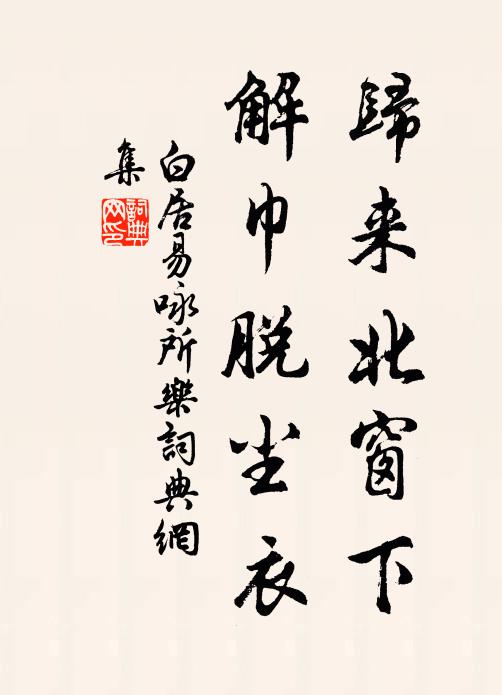 歸来北窗下
解巾脱尘衣
白居易咏所樂詞典網
集
詞典
网印